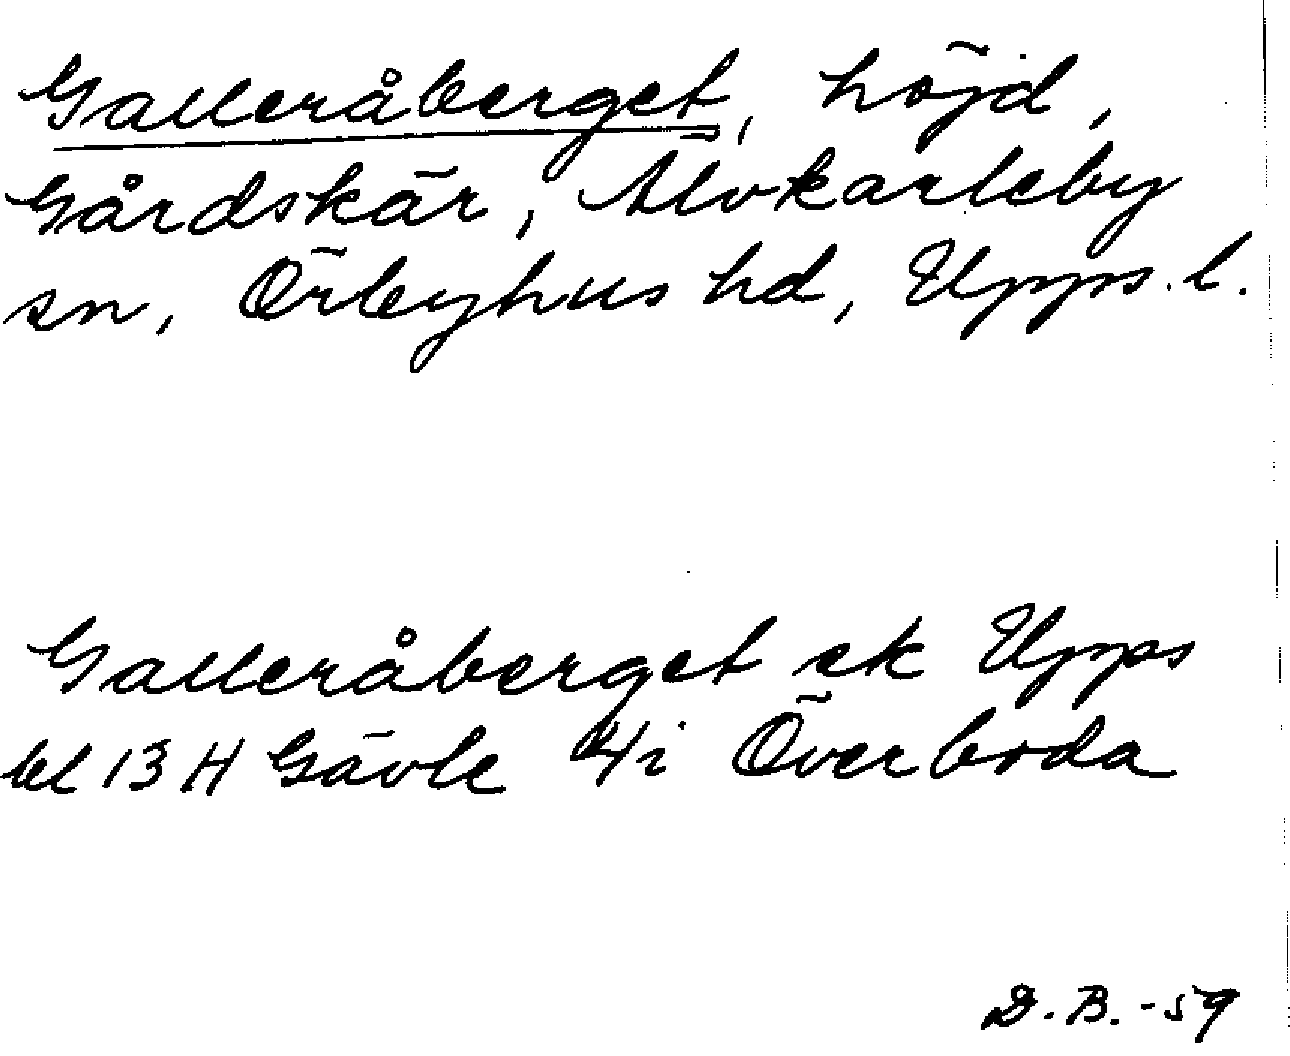 Galleråberget, höjd,
Gårdskär, Älvkarleby
sn, Örbyhus hd, Upps. l.
Galleråberget ek Upps
bl 13 H Gävle 4i Överboda
D. B. -59